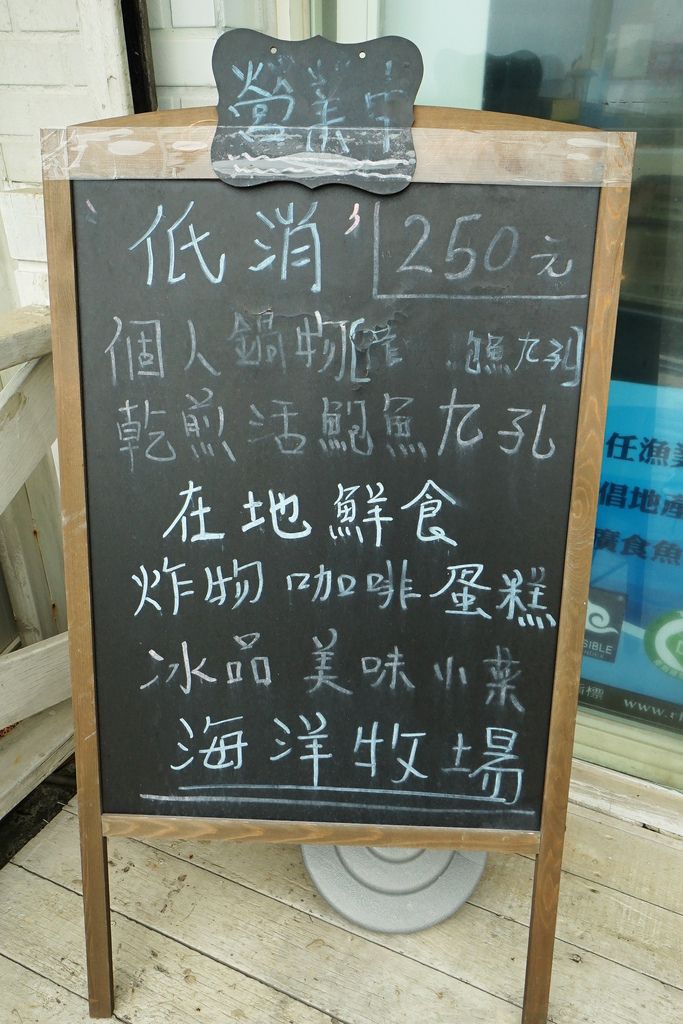 營業中
低消 250元
個人鍋物[ 鮑魚九孔]
乾煎活鮑魚九孔
在地鮮食
炸物 咖啡 蛋糕
冰品 美味小菜
海洋牧場
任漁
倡地產
食魚
SIBLE
標
www.r